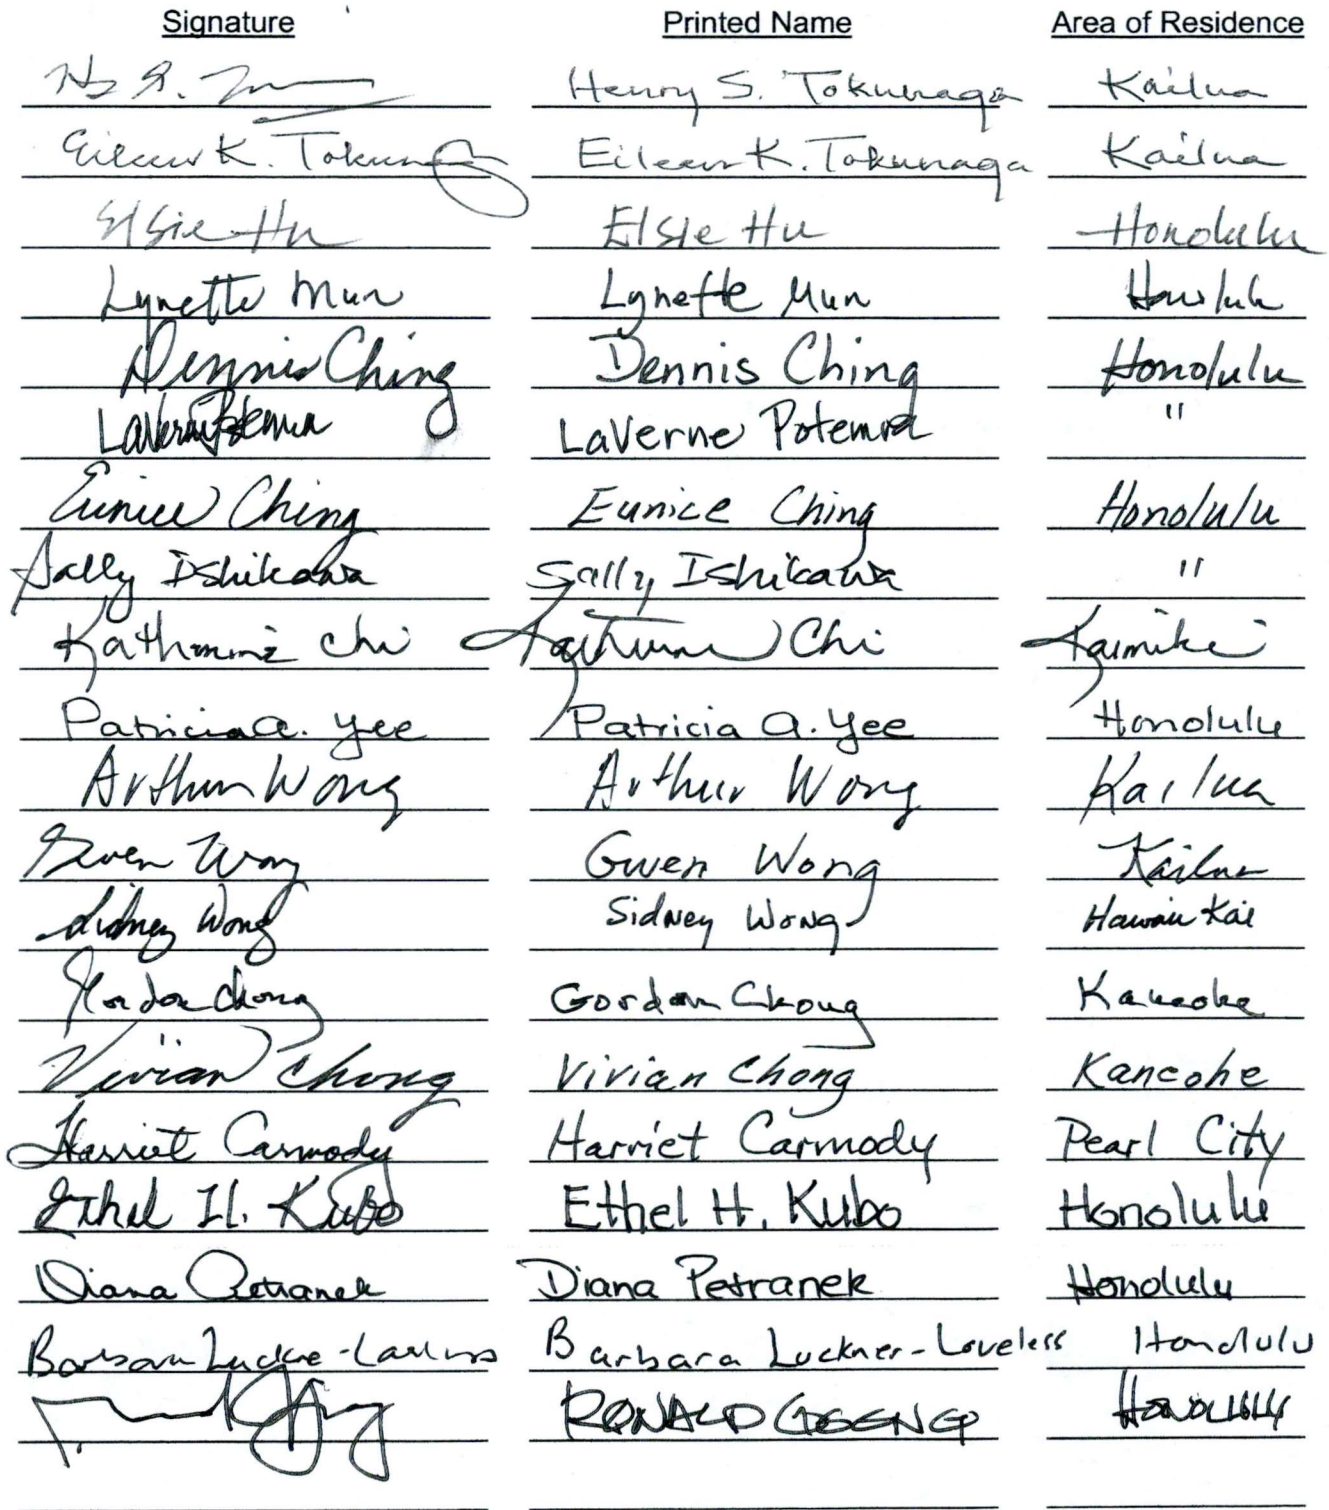 Signature Printed Name Area of Residence
Henry S. Tokunaga Kailua
Eileen K. Tokunaga Eileen K. Tokunaga Kailua
Elsie Hu Elsie Hu Honolulu
Lynette Mun Lynette Mun Honolulu
Dennis Ching Dennis Ching Honolulu
LaVerne Potemra LaVerne Potemra "
Eunice Ching Eunice Ching Honolulu
Sally Ishikawa Sally Ishikawa "
Katherine Chi Chi Kaimuki
Patricia A. Yee Patricia A. Yee Honolulu
Arthur Wong Arthur Wong Kailua
Gwen Wong Gwen Wong Kailua
Sidney Wong Sidney Wong Hawaii Kai
Gordon Chong Gordon Chong Kaneohe
Vivian Chong Vivian Chong Kaneohe
Harriet Carmody Harriet Carmody Pearl City
Ethel H. Kubo Ethel H. Kubo Honolulu
Diana Petranek Diana Petranek Honolulu
Barbara Luckner-Loveless Barbara Luckner-Loveless Honolulu
RONALD HONOLULU